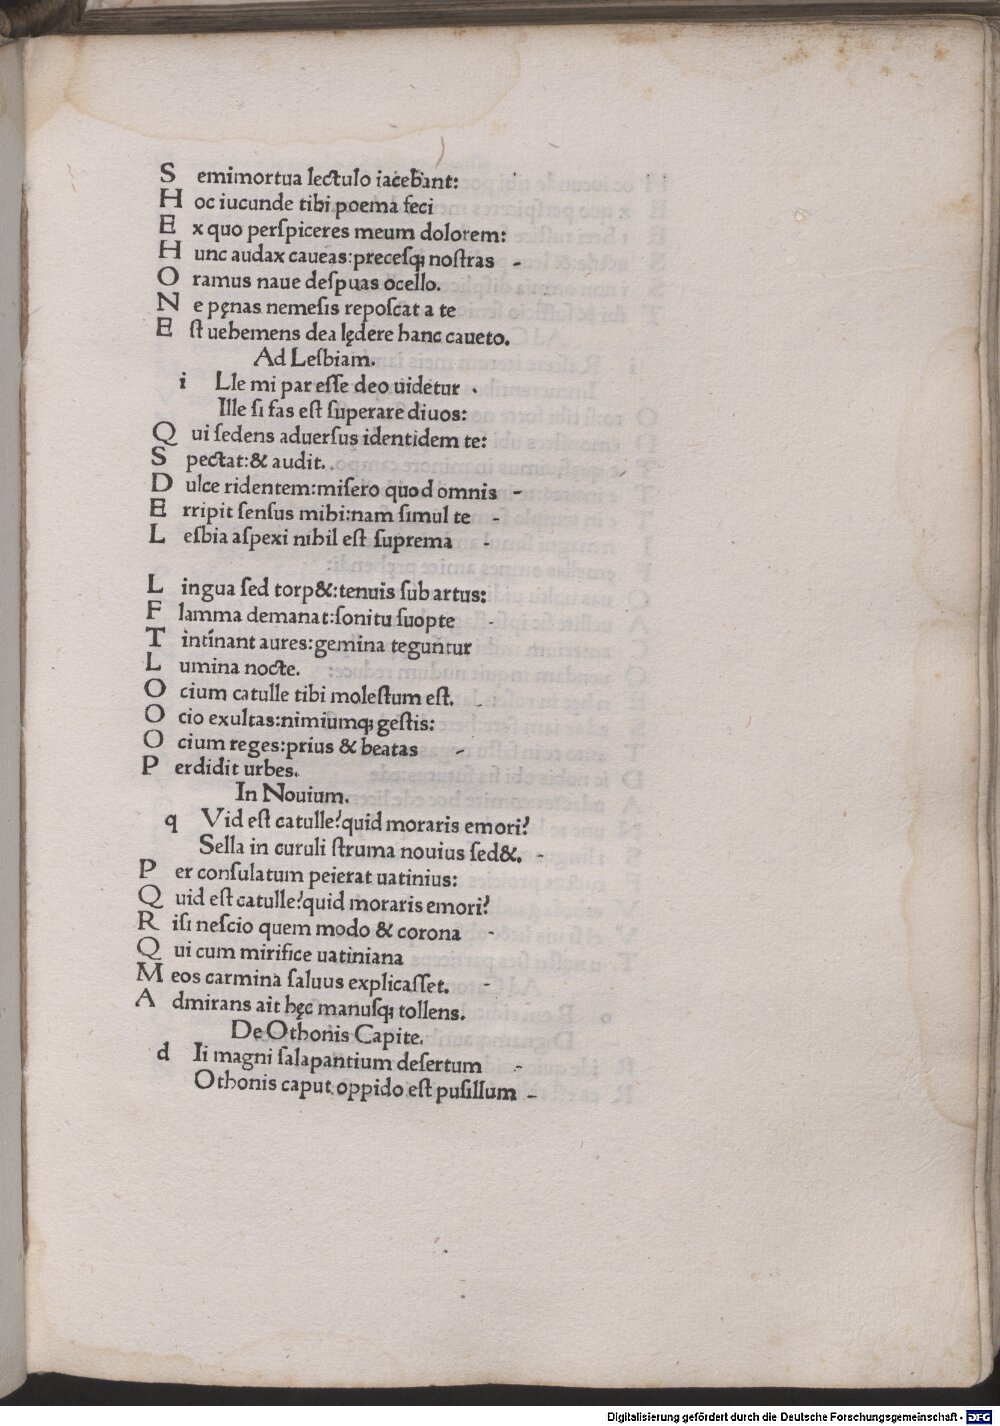 S emimortua lectulo iacebant:
H oc iucunde tibi poema feci
E x quo perſpiceres meum dolorem:
H unc audax caueas:preceſqꝫ noſtras -
O ramus naue deſpuas ocello.
N e pęnas nemeſis repoſcat a te
E ſt uehemens dea lędere hanc caueto.
Ad Lesbiam.
i Lle mi par eſſe deo uidetur -
Ille ſi fas eſt ſuperare diuos:
Q ui ſedens aduerſus identidem te:
S pectat:& audit.
D ulce ridentem:miſero quod omnis -
E rripit ſenſus mihi:nam ſimul te -
L esbia aſpexi nihil eſt ſuprema -
L ingua ſed torp&:tenuis ſub artus:
F lamma demanat:ſonitu ſuopte -
T intīnant aures:gemina teguñtur
L umina nocte.
O cium catulle tibi moleſtum eſt.
O cio exultas:nimiumqꝫ geſtis:
O cium reges:prius & beatas -
P erdidit urbes.
In Nouium.
q Vid eſt catulle?quid moraris emori?
Sella in curuli ſtruma nouius ſed&. -
P er conſulatum peierat uatinius:
Q uid eſt catulle?quid moraris emori?
R iſi neſcio quem modo & corona -
Q ui cum mirifice uatiniana
M eos carmina ſaluus explicaſſet. -
A dmirans ait hęc manuſqꝫ tollens.
De Othonis Capite.
d Ii magni ſalapantium deſertum -
Othonis caput oppido eſt puſillum -
Digitalisierung gefördert durch die Deutsche Forschungsgemeinschaft - DFG